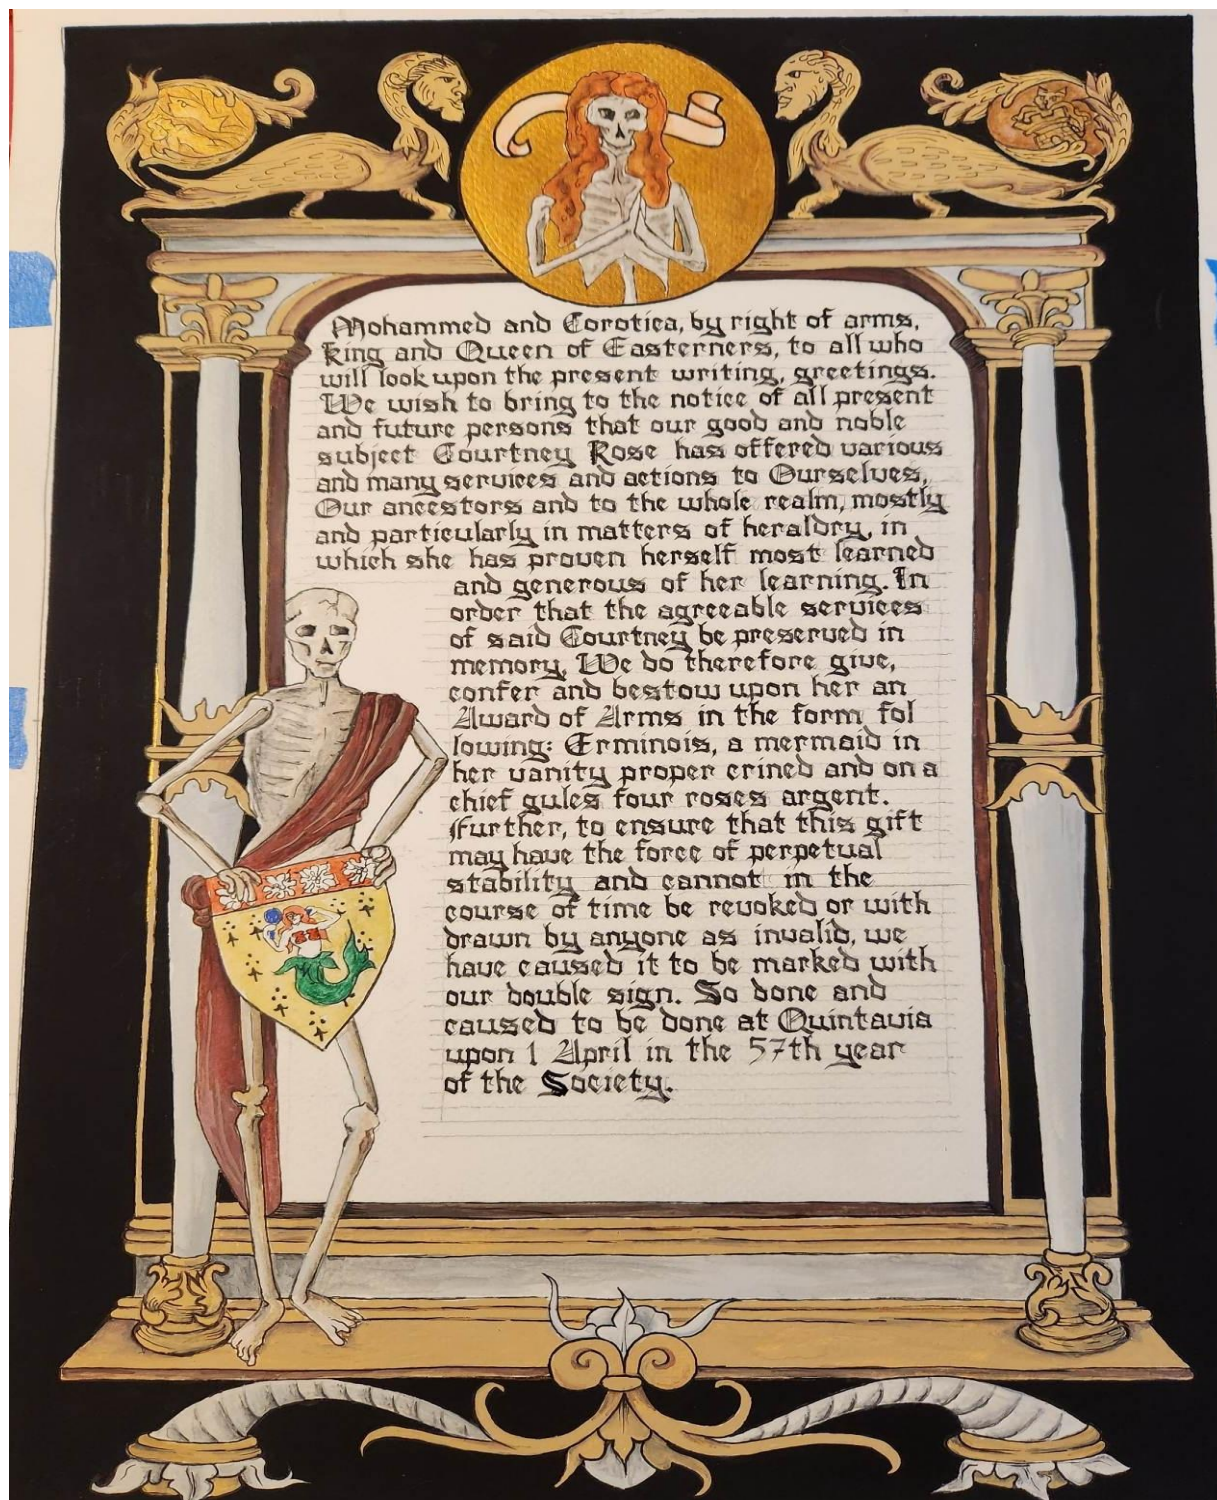 Mohammed and Corotica, by right of arms,
King and Queen of Easterners, to all who
will look upon the present writing, greetings.
We wish to bring to the notice of all present
and future persons that our good and noble
subject Courtney Rose has offered various
and many services and actions to Ourselves,
Our ancestors and to the whole realm, mostly
and particularly in matters of heraldry, in
which she has proven herself most learned
and generous of her learning. In
order that the agreeable services
of said Courtney be preserved in
memory, We do therefore give,
confer and bestow upon her an
Award of Arms in the form fol
lowing: Erminois, a mermaid in
her vanity proper crined and on a
chief gules four roses argent.
Further, to ensure that this gift
may have the force of perpetual
stability and cannot in the
course of time be revoked or with
drawn by anyone as invalid, we
have caused it to be marked with
our double sign. So done and
caused to be done at Quintavia
upon 1 April in the 57th year
of the Society.